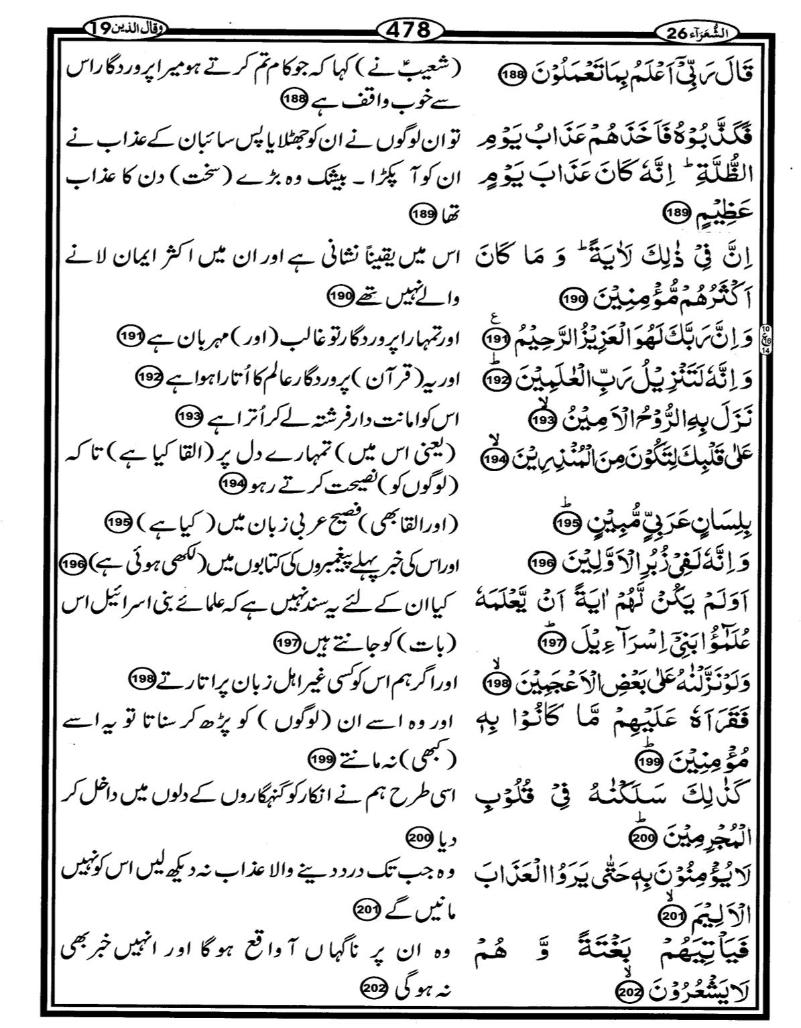 الشُّعَرَآء 26
478
وقال الذين 19
قَالَ رَبِّیْۤ اَعْلَمُ بِمَا تَعْمَلُوْنَ 188
(شعیبؑ نے) کہا کہ جو کام تم کرتے ہو میرا پروردگار اس
سے خوب واقف ہے 188
فَكَذَّبُوْهُ فَاَخَذَهُمْ عَذَابُ یَوْمِ
الظُّلَّةِ ؕ اِنَّهٗ كَانَ عَذَابَ یَوْمٍ
عَظِیْمٍ 189
تو ان لوگوں نے ان کو جھٹلایا پس سائبان کے عذاب نے
ان کو آ پکڑا ۔ بیشک وہ بڑے (سخت) دن کا عذاب
تھا 189
اِنَّ فِیْ ذٰلِكَ لَاٰیَةً ؕ وَ مَا كَانَ
اَكْثَرُهُمْ مُّؤْمِنِیْنَ 190
اس میں یقیناً نشانی ہے اور ان میں اکثر ایمان لانے
والے نہیں تھے 190
وَ اِنَّ رَبَّكَ لَهُوَ الْعَزِیْزُ الرَّحِیْمُ 191 ع
10
ع
14
اور تمہارا پروردگار تو غالب (اور) مہربان ہے 191
وَ اِنَّهٗ لَتَنْزِیْلُ رَبِّ الْعٰلَمِیْنَ ؕ 192
اور یہ (قرآن) پروردگار عالم کا اُتارا ہوا ہے 192
نَزَلَ بِهِ الرُّوْحُ الْاَمِیْنُ ۙ 193
اس کو امانت دار فرشتہ لے کر اُترا ہے 193
عَلٰی قَلْبِكَ لِتَكُوْنَ مِنَ الْمُنْذِرِیْنَ ۙ 194
(یعنی اس میں) تمہارے دل پر (القا کیا ہے) تا کہ
(لوگوں کو) نصیحت کرتے رہو 194
بِلِسَانٍ عَرَبِیٍّ مُّبِیْنٍ ؕ 195
(اور القا بھی) فصیح عربی زبان میں (کیا ہے) 195
وَ اِنَّهٗ لَفِیْ زُبُرِ الْاَوَّلِیْنَ 196
اور اس کی خبر پہلے پیغمبروں کی کتابوں میں (لکھی ہوئی ہے) 196
اَوَلَمْ یَكُنْ لَّهُمْ اٰیَةً اَنْ یَّعْلَمَهٗ
عُلَمٰٓؤُا بَنِیْۤ اِسْرَآءِیْلَ ؕ 197
کیا ان کے لئے یہ سند نہیں ہے کہ علمائے بنی اسرائیل اس
(بات) کو جانتے ہیں 197
وَ لَوْ نَزَّلْنٰهُ عَلٰی بَعْضِ الْاَعْجَمِیْنَ ۙ 198
اور اگر ہم اس کو کسی غیر اہل زبان پر اتارتے 198
فَقَرَاَهٗ عَلَیْهِمْ مَّا كَانُوْا بِهٖ
مُؤْمِنِیْنَ ؕ 199
اور وہ اسے ان (لوگوں) کو پڑھ کر سناتا تو یہ اسے
(کبھی) نہ مانتے 199
كَذٰلِكَ سَلَكْنٰهُ فِیْ قُلُوْبِ
الْمُجْرِمِیْنَ ؕ 200
اسی طرح ہم نے انکار کو گنہگاروں کے دلوں میں داخل کر
دیا 200
لَا یُؤْمِنُوْنَ بِهٖ حَتّٰی یَرَوُا الْعَذَابَ
الْاَلِیْمَ ۙ 201
وہ جب تک درد دینے والا عذاب نہ دیکھ لیں اس کو نہیں
مانیں گے 201
فَیَاْتِیَهُمْ بَغْتَةً وَّ هُمْ
لَا یَشْعُرُوْنَ ۙ 202
وہ ان پر ناگہاں آ واقع ہوگا اور انہیں خبر بھی
نہ ہوگی 202